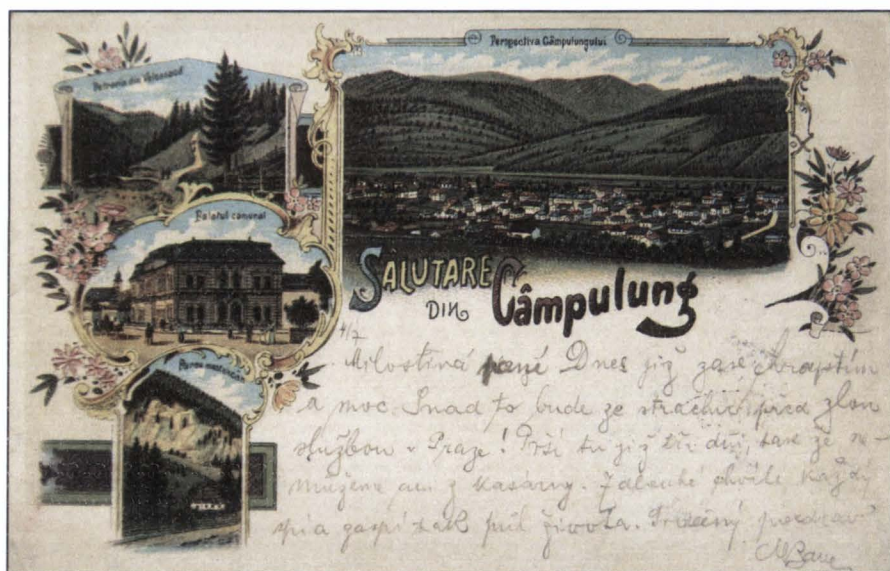 Perspectiva Câmpulungului
din
Palatul comunal
SALUTARE
DIN Câmpulung
4/7
Milostivá paní Dnes již zase chraptím
a moc. Snad to bude ze strachu před zlou
službou v Praze! Prší tu již tři dni, tak že ne-
můžeme ani z kasárny. Z dlouhé chvíle každý
spí a zaspí tak půl života. Srdečný pozdrav